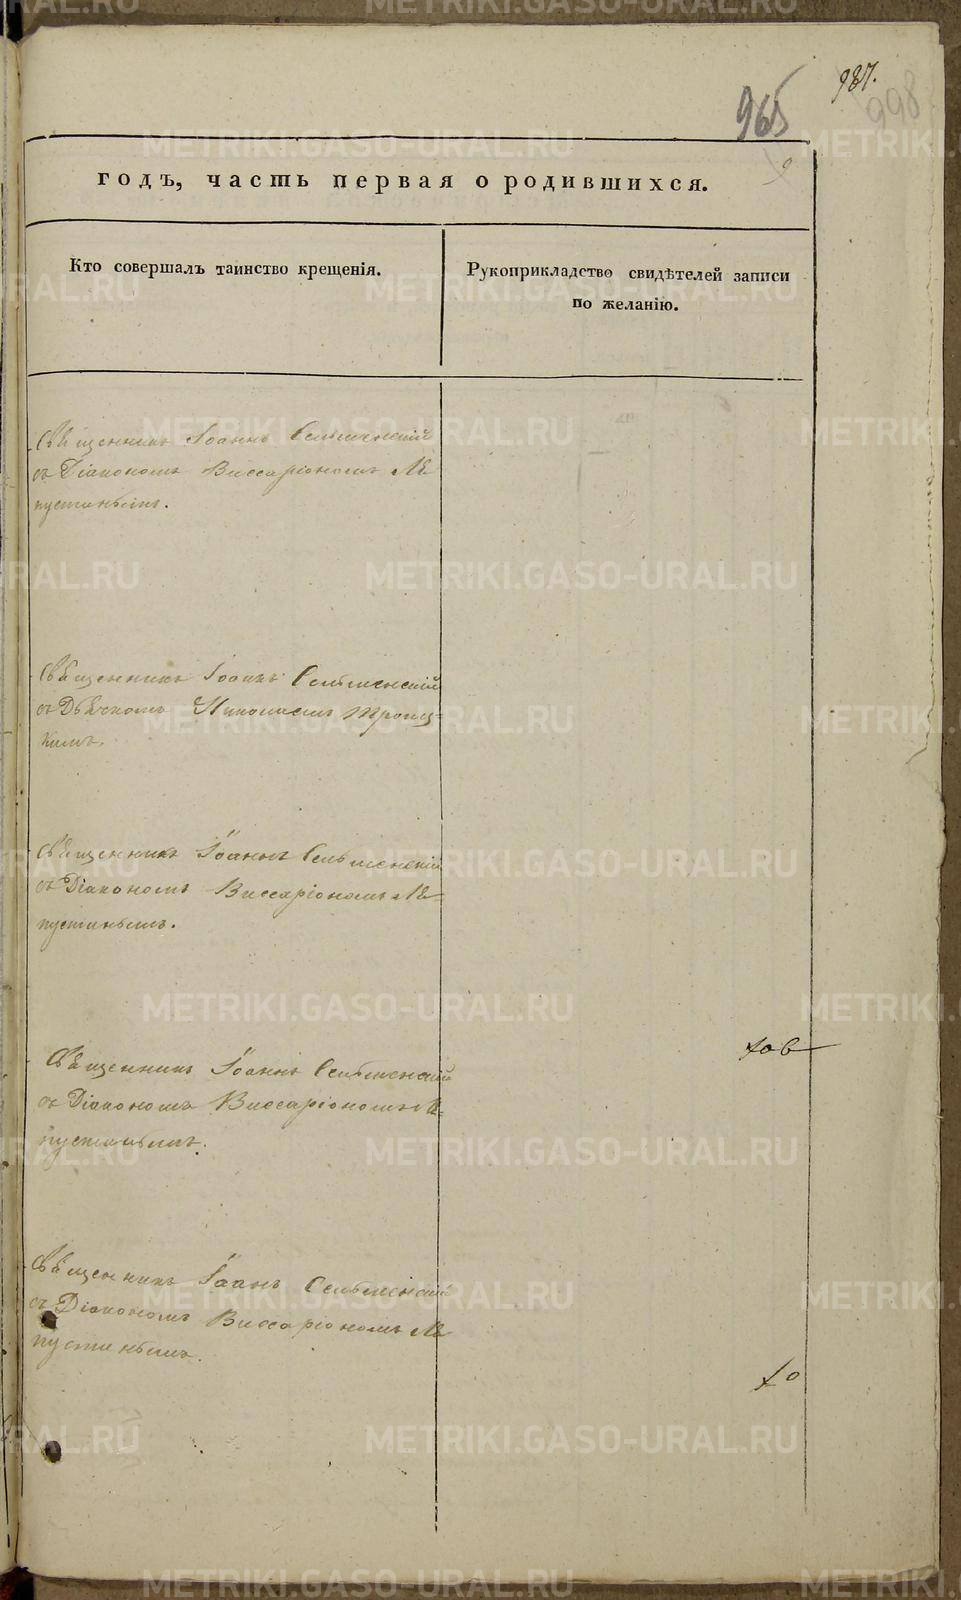 987.
965
998
9
годъ, часть первая о родившихся.
Кто совершалъ таинство крещенія.
Рукоприкладство свидѣтелей записи
по желанію.
Священникъ Іоаннъ Сельменскій
съ Діакономъ Виссаріономъ Лѣ
пустинымъ.
Священникъ Іоаннъ Сельменскій
съ Дьячкомъ Николаемъ Троиц-
кимъ.
Священникъ Іоаннъ Сельменскій
съ Діакономъ Виссаріономъ Лѣ-
пустинымъ.
Священникъ Іоаннъ Сельменскій
съ Діакономъ Виссаріономъ Лѣ-
пустинымъ.
Священникъ Іоаннъ Сельменскій
съ Діакономъ Виссаріономъ Лѣ
пустинымъ.
METRIKI.GASO-URAL.RU